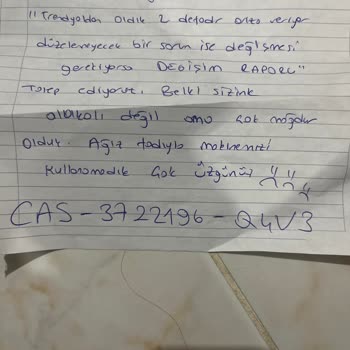 "Trendyoldan aldık 2 defadır arıza veriyor
düzelemeyecek bir sorun ise değişmesi
gerekiyorsa DEĞİŞİM RAPORU"
Talep ediyoruz. Belki sizinle
alakalı değil ama çok mağdur
olduk. Ağız tadıyla makinemizi
kullanamadık çok üzgünüz
CAS-3722196-Q4V3